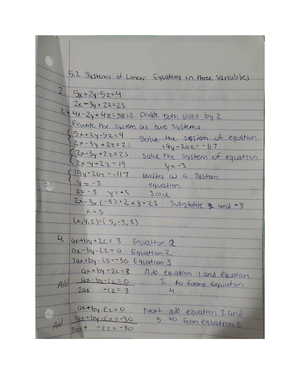 5.2 Systems of Linear Equations in three Variables
2. 5x+2y-5z=4
2x-3y+2z=23
4x-2y+4z=38÷2 Divide both sides by 2
Rewrite the system as two systems
5x+2y-5z=4 Solve the system of equation
2x-3y+2z=23 19y-20z=-117
2x-3y+2z=23 Solve the system of equation
2x-y+2z=19 y=-3
19y-20z=-117 Write as a system
y=-3 equation
z=3 y=-3 Solve
2x-3×(-3)+2×3=23 Substitute and -3
x=
(x,y,z)=(,-3,3)
4. ax+by+2c=3 Equation
ax-by-cz=0 Equation 2
2ax+by+cz=-30 Equation 3
ax+by+2c=3 Add equation 1 and equation
Add ax-by-cz=0 2 to form equation
2ax +cz=3 4.
ax+by-cz=0 Next add equation 2 and
Add by-cz=-30 3 to form equation 5
-cz=-30